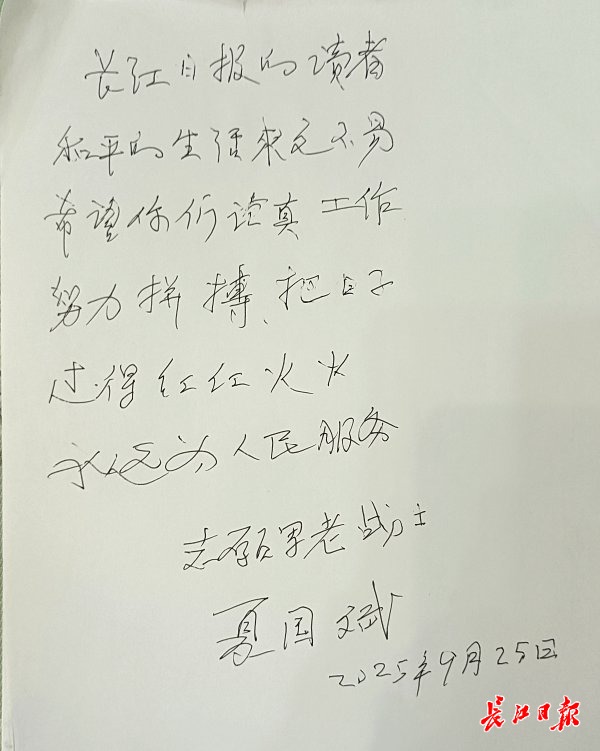 长江日报的读者
和平的生活来之不易
希望你们认真工作
努力拼搏、把日子
过得红红火火
永远为人民服务
志愿军老战士
夏国斌
2025年9月25日
长江日报